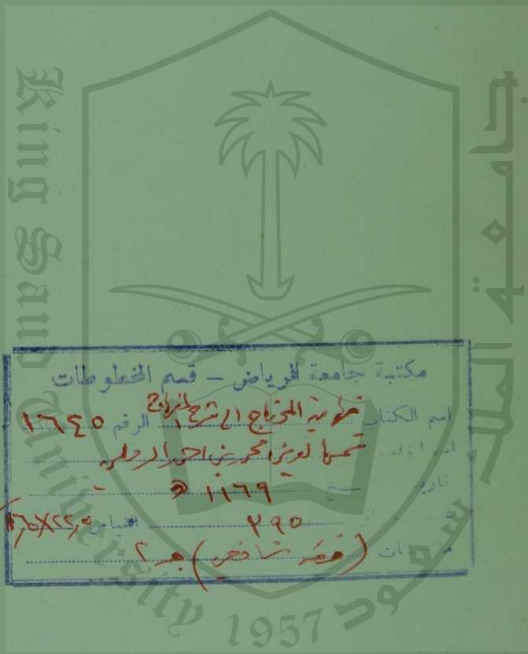 King Saud University
1957
مكتبة جامعة الرياض - قسم المخطوطات
اسم الكتاب نهاية المحتاج الى شرح المنهاج الرقم ١٦٤٥
اسم المؤلف شمس الدين محمد بن احمد الرملي
تاريخ ١١٦٩ هـ
٣٩٥ القياس
(فقه شافعي) جـ ٢